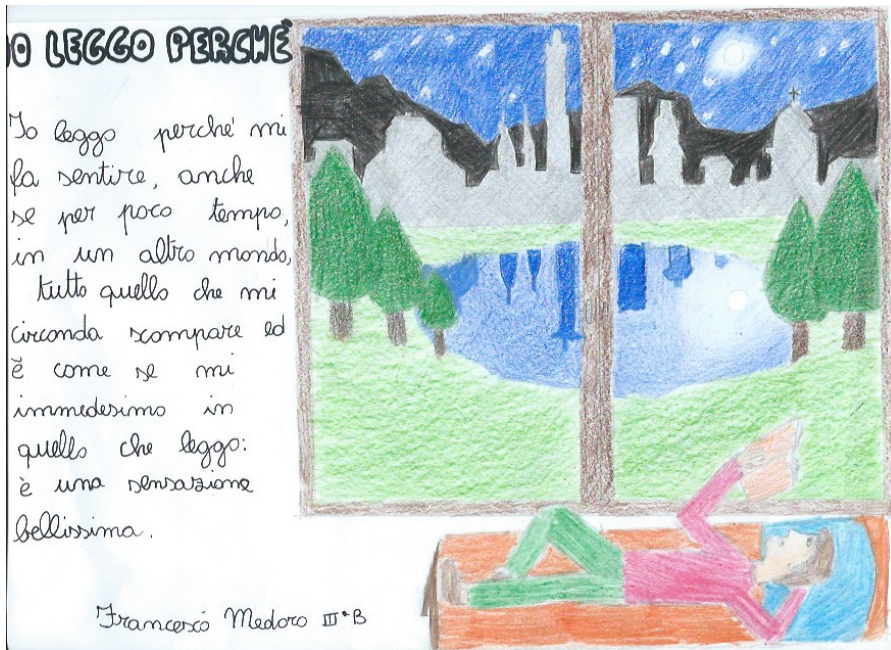 IO LEGGO PERCHÉ
Io leggo perché mi
fa sentire, anche
se per poco tempo,
in un altro mondo,
tutto quello che mi
circonda scompare ed
è come se mi
immedesimo in
quello che leggo:
è una sensazione
bellissima.
Francesco Medoro III^a B